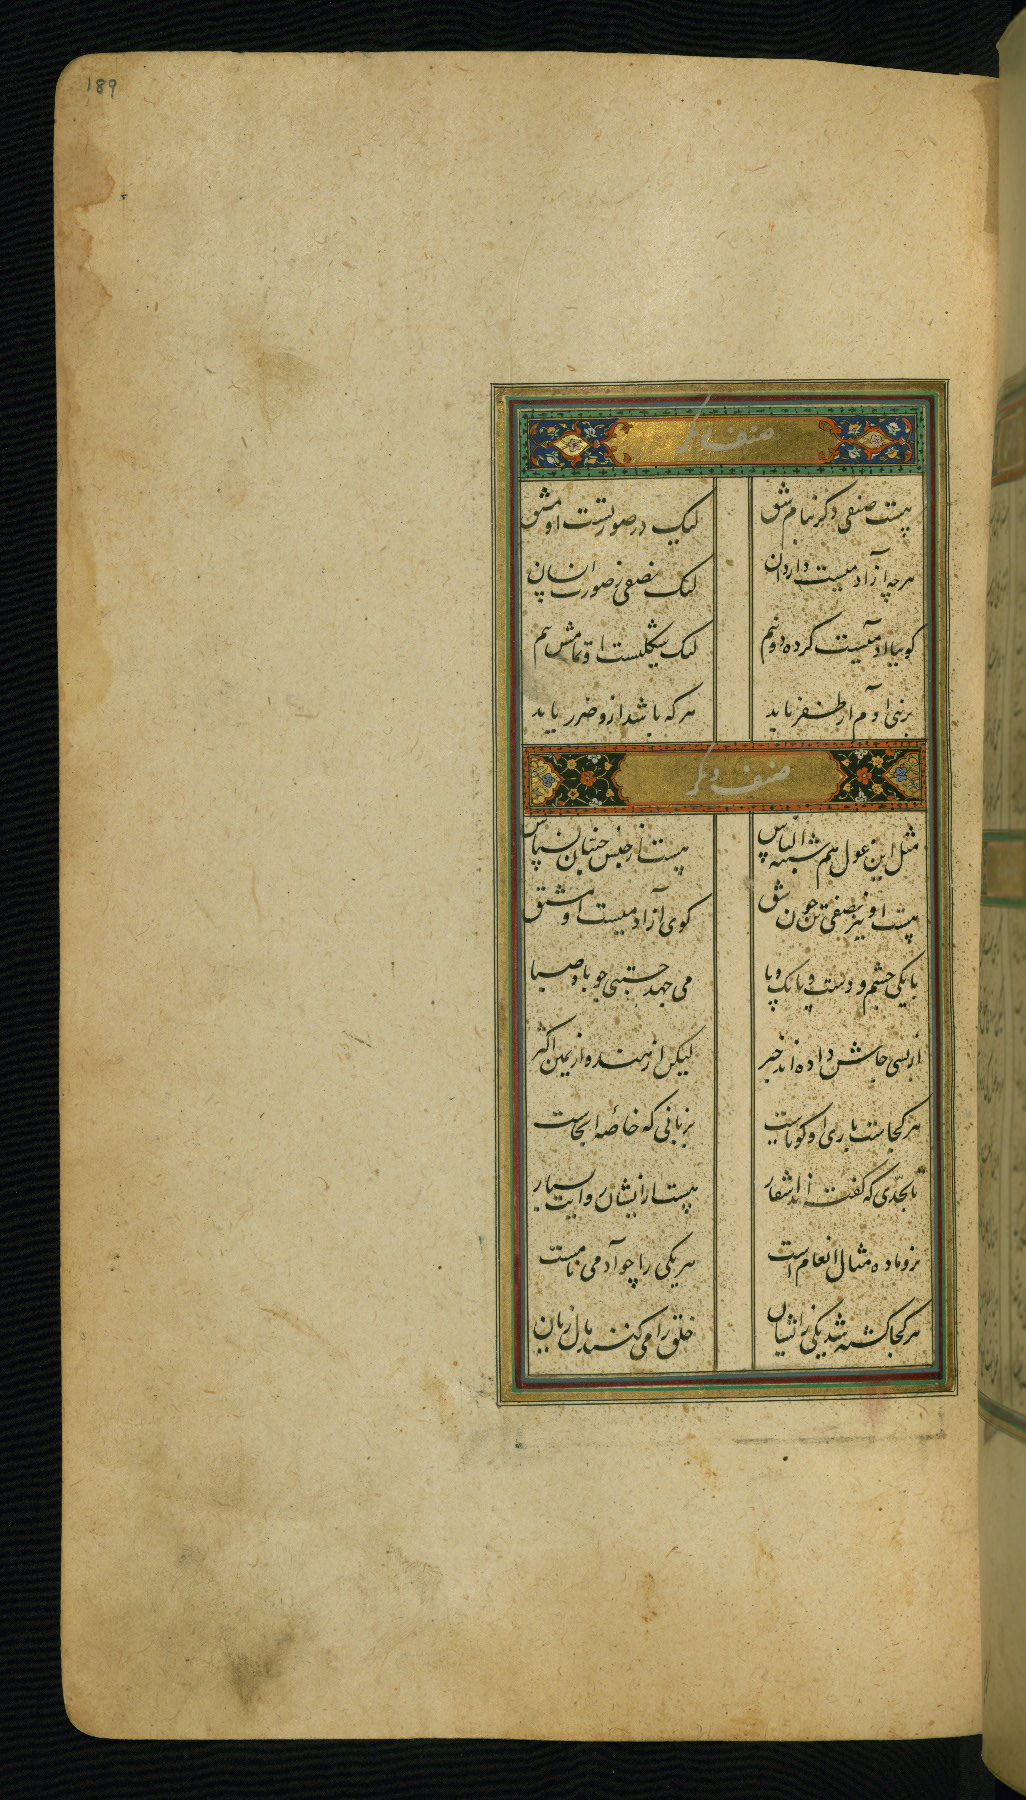 189
صنف دیکر
هست صنفی دکر بنام شق
لیک در صورتست او مشق
هرچه از آدمیست دارد آن
لیک نصفی ز صورت انسان
کوییا آدمیست کرده دو نیم
لیک بی شکلست او
برنی آدم ار ظفر یابد
هر که باشد ازو ضرر یابد
صنف دیکر
مثل این غول هم شبیه الناس
هست از جنس جنیان نسناس
هست او نیز نصفی تن چون شق
کوی از آدمیست او مشتق
با یکی چشم و دست و با یک پا
می جهد جستنی چو باد صبا
از بسی جاش داده اند خبر
لیکن از هند و از یمن اکثر
هر کجا هست باری او کویاست
بزبانی که خاصه آنجاست
تا بحدی که کفته اند اشعار
هست از ایشان روایت بسیار
نر و ماده مثال انعام است
هر یکی را چو آدمی نامست
هر کجا کشته شد یکی ز ایشان
خلق را می کنند مال زیان